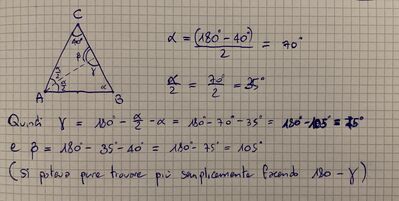 C
40°
β
γ
α/2
α/2
α
A
B
α = (180° - 40°)/2 = 70°
α/2 = 70°/2 = 35°
Quindi γ = 180° - α/2 - α = 180° - 70° - 35° = 180° - 105° = 75°
e β = 180° - 35° - 40° = 180° - 75° = 105°
(Si poteva pure trovare più semplicemente facendo 180 - γ)